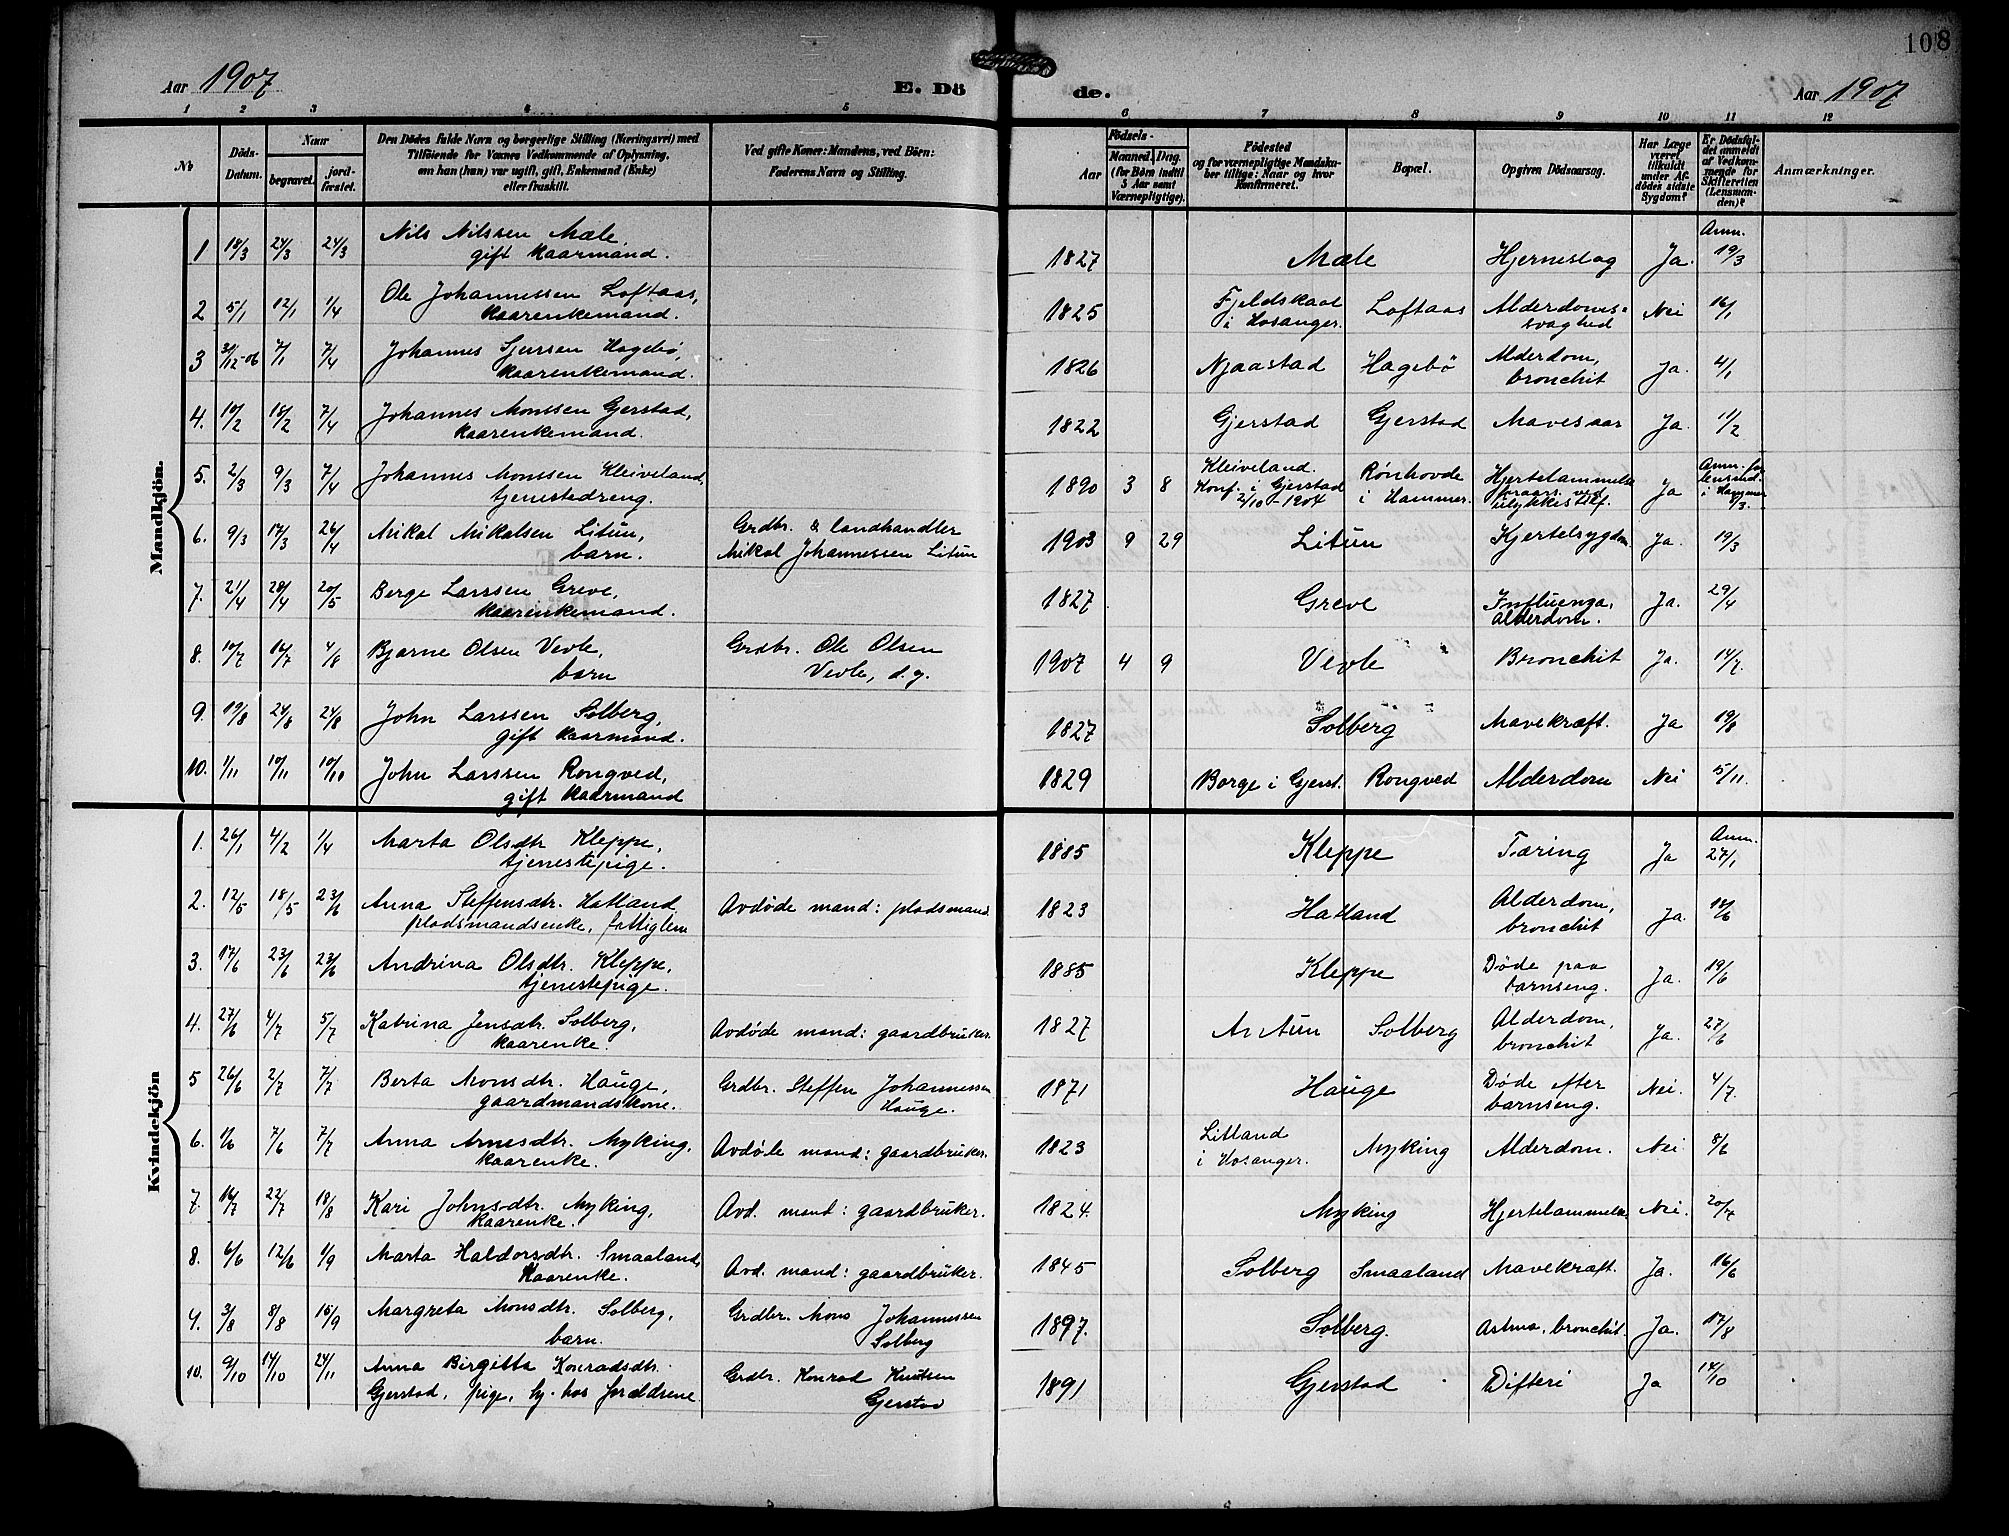 108
Aar 1907 E. Dö de. Aar 1907
1 2 3 4 5 6 7 8 9 10 11 12
No
Döds-Datum.
Naar
begravet.
jord-fæstet.
Den Dödes fulde Navn og borgerlige Stilling (Næringsvei) med
Tilföiende for Voxnes Vedkommende af Oplysning,
om han (hun) var ugift, gift, Enkemand (Enke)
eller fraskilt.
Ved gifte Koner: Mandens, ved Börn:
Faderens Navn og Stilling.
Födsels-
Aar
Maaned. Dag.
(for Börn indtil
5 Aar samt
Værnepligtige).
Födested
og for værnepligtige Mandskaber
tillige: Naar og hvor
Konfirmeret.
Bopæl.
Opgiven Dödsaarsag.
Har Læge
været
tilkaldt
under Afdödes
sidste
Sygdom?
Er Dödsfaldet
anmeldt
af Vedkommende
for
Skifteretten
(Lensmanden)?
Anmærkninger.
Mandkjön.
1 18/3 24/3 24/3 Nils Nilssen Mæle, gift kaarmand. 1827 Mæle Hjerneslag Ja. Anm. 19/3
2 5/1 12/1 1/4 Ole Johannessen Loftaas, kaarenkemand. 1825 Fjeldskaal i Hosanger. Loftaas Alderdoms-svaghed Nei 16/1
3 31/12-06 7/1 7/4 Johannes Sjurssen Hagebø, kaarenkemand. 1826 Njaastad Hagebø Alderdom, bronchit Ja. 4/1
4. 10/2 18/2 7/4 Johannes Monssen Gjerstad, kaarenkemand. 1822 Gjerstad Gjerstad Mavesaar Ja. 11/2
5. 2/3 9/3 7/4 Johannes Monssen Kleiveland, tjenestedreng. 1890 3 8 Kleiveland. Konf. i Gjerstad 2/10-1904 Rønhovde i Hammer. Hjertelammelse foraars. ved ulykkestilf. Ja Anm. for lensmd. i Hammer
6. 9/3 17/3 26/4 Mikal Mikalsen Litun, barn. Grdbr. & landhandler Mikal Johannessen Litun 1903 9 29 Litun Kjertelsygdom Ja. 19/3
7. 21/4 28/4 20/5 Berge Larssen Greve, kaarenkemand. 1827 Greve Influenza, alderdom. Ja. 29/4
8. 10/7 16/7 4/8 Bjarne Olsen Vevle, barn Grdbr. Ole Olsen Vevle, d.y. 1907 4 9 Vevle Bronchit Ja. 14/7
9. 19/8 24/8 24/8 John Larssen Solberg, gift kaarmand. 1827 Solberg Mavekræft. Ja 19/8
10. 1/11 10/11 10/11 John Larssen Rongved, gift kaarmand 1829 Borge i Gjerst. Rongved Alderdom Nei 5/11.
Kvindekjön
1. 26/1 4/2 1/4 Marta Olsdtr. Kleppe, tjenestepige. 1885 Kleppe Tæring Ja Anm. 27/1
2. 12/5 18/5 23/6 Anna Steffensdtr. Hatland pladsmandsenke, fattiglem Avdøde mand: pladsmand. 1823 Hatland Alderdom, bronchit Ja. 18/6
3. 17/6 23/6 23/6 Andrina Olsdtr. Kleppe, tjenestepige. 1885 Kleppe Døde paa barnseng. Ja. 19/6
4. 27/6 4/7 5/7 Katrina Jensdtr. Solberg, kaarenke. Avdøde mand: gaardbruker. 1827 Solberg Alderdom, bronchit Ja. 27/6
5 26/6 2/7 7/7 Berta Monsdtr. Hauge, gaardmandskone. Grdbr. Steffen Johannessen Hauge. 1871 Hauge Døde efter barnseng. Nei. 4/7.
6. 1/6 7/6 7/7 Anna Arnesdtr. Myking, kaarenke. Avdøde mand: gaardbruker. 1823 Litland i Hosanger. Myking Alderdom. Nei 8/6
7. 16/7 22/7 18/8 Kari Johnsdtr. Myking, kaarenke. Avd. mand: gaardbruker. 1824. Myking Hjertelammelse Nei. 20/7
8. 6/6 12/6 1/9 Marta Haldorsdtr. Smaaland, kaarenke. Avd. mand: gaardbruker. 1845 Solberg Smaaland Mavekræft. Ja. 16/6
9. 3/8 8/8 15/9 Margreta Monsdtr. Solberg, barn. Grdbr. Mons Johannessen Solberg 1897. Solberg. Astma, bronchit. Ja. 17/8
10. 9/10 14/10 24/11 Anna Birgitta Konradsdtr. Gjerstad, pige, hj. hos forældrene Grdbr. Konrad Knutsen Gjerstad 1891 Gjerstad Difteri Ja 14/10